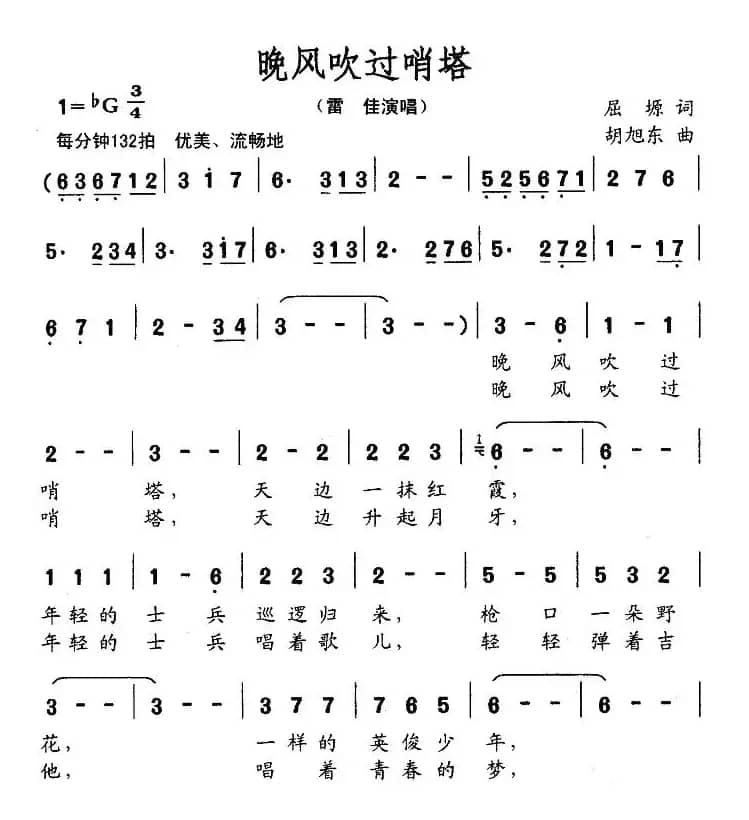 晚风吹过哨塔
1=♭G 3/4
（雷 佳演唱）
屈 塬 词
每分钟132拍 优美、流畅地
胡旭东 曲
(636712 | 3 i 7 | 6· 313 | 2 - - | 525671 | 2 7 6 |
5· 234 | 3· 3i7 | 6· 313 | 2· 276 | 5· 272 | 1 - 17 |
6 7 1 | 2 - 34 | 3 - - | 3 - -) | 3 - 6 | 1 - 1 |
晚 风 吹 过
晚 风 吹 过
2 - - | 3 - - | 2 - 2 | 2 2 3 | 1 6 - - | 6 - - |
哨 塔， 天 边 一抹红 霞，
哨 塔， 天 边 升起月 牙，
1 1 1 | 1 - 6 | 2 2 3 | 2 - - | 5 - 5 | 5 3 2 |
年轻的 士 兵 巡逻归 来， 枪 口 一朵野
年轻的 士 兵 唱着歌 儿， 轻 轻 弹着吉
3 - - | 3 - - | 3 7 7 | 7 6 5 | 6 - - | 6 - - |
花， 一样的 英俊少 年，
他， 唱着 青春的 梦，